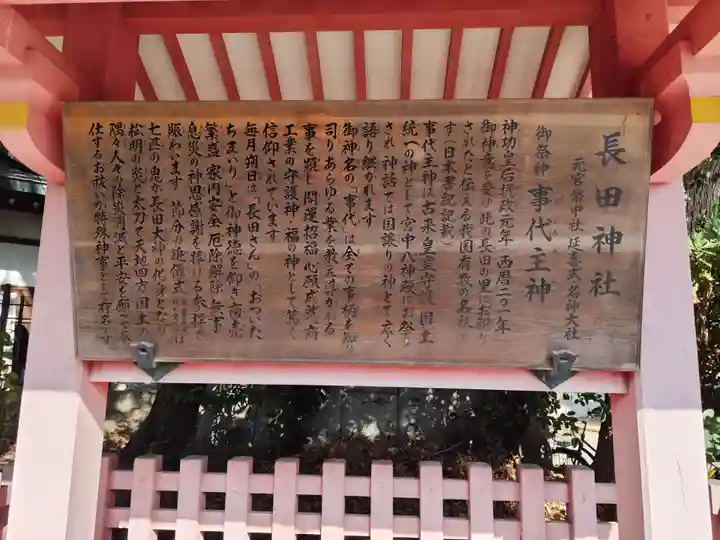 長田神社
元官幣中社 延喜式 名神大社
御祭神 事代主神
神功皇后摂政元年(西暦二〇一年)
御神意を受け此の長田の里にお祀り
されたと伝える我国有数の名社で
す(日本書紀記載)
事代主神は古来皇室守護 国土
統一の神として宮中八神殿にお祭り
され 神話では国譲りの神として広く
語り継がれます
御神名の「事代」は全ての事柄を知り
司りあらゆる業を教え導かれる
事を顕し 開運招福 心願成就 商
工業の守護神 福の神として篤く
信仰されています
毎月朔日は「長田さん」の「おついた
ちまいり」と御神徳を仰ぎ 商売
繁盛 家内安全 厄除解除 無事
息災の神恩感謝を捧げる参拝で
賑わいます 節分の追儺式は
七匹の鬼が長田大神の化身となり
松明の炎と太刀で天地四方国土の
隅々人々の除災消滅と平安を願って奉
仕するお祓い特殊神事として有名です